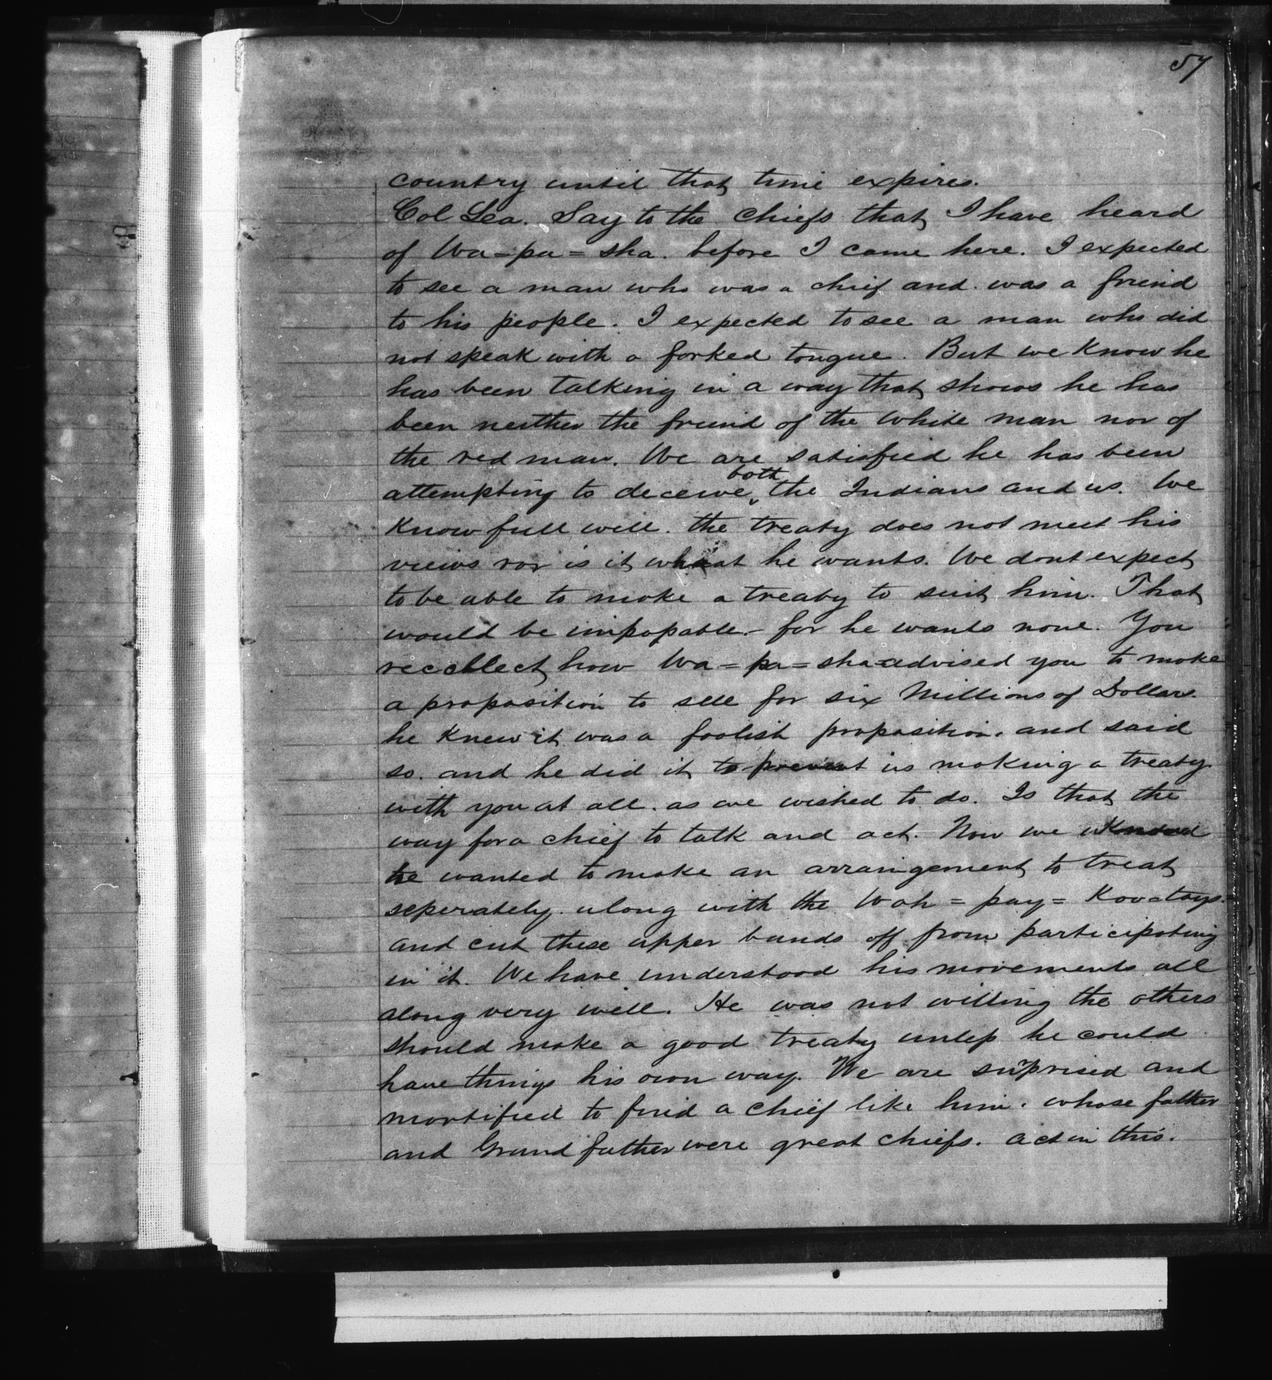 57
country until that time expires.
Col Lea. Say to the Chiefs that I have heard
of Wa=pa=sha. before I came here. I expected
to see a man who was a chief and was a friend
to his people. I expected to see a man who did
not speak with a forked tongue. But we know he
has been talking in a way that shows he has
been neither the friend of the White man nor of
the red man. We are satisfied he has been
attempting to deceive both the Indians and us. We
know full well. the treaty does not meet his
views nor is it what he wants. We dont expect
to be able to make a treaty to suit him. That
would be impossible - for he wants none. You
recollect how Wa=pa=sha advised you to make
a proposition to sell for six Millions of Dollars
he knew it was a foolish proposition. and said
so. and he did it to prevent us making a treaty
with you at all. as we wished to do. Is that the
way for a chief to talk and act. Now we
he wanted to make an arrangement to treat
seperately. along with the Wah=pay=Koo=tays.
and cut these upper bands off from participating
in it. We have understood his movements all
along very well. He was not willing the others
should make a good treaty unless he could
have things his own way. We are surprised and
mortified to find a chief like him. whose father
and Grand father were great chiefs. act in this.